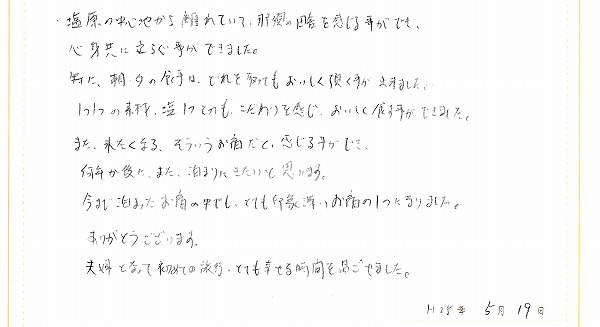 ・塩原の中心地から離れていて、那須の田舎を感じる事ができ、
心身共に安らぐ事ができました。
特に、朝・夕の食事は、どれを取ってもおいしく頂く事が出来ました。
1つ1つの素材、塩1つとっても、こだわりを感じ、おいしく食す事ができました。
また、来たくなる、そういうお宿だと、感じる事ができ、
何年か後に、また、泊まりにきたいと思います。
今まで泊まったお宿の中でも、とても印象深いお宿の1つになりました。
ありがとうございます。
夫婦となって初めての旅行、とても幸せな時間を過ごせました。
H25年 5月19日